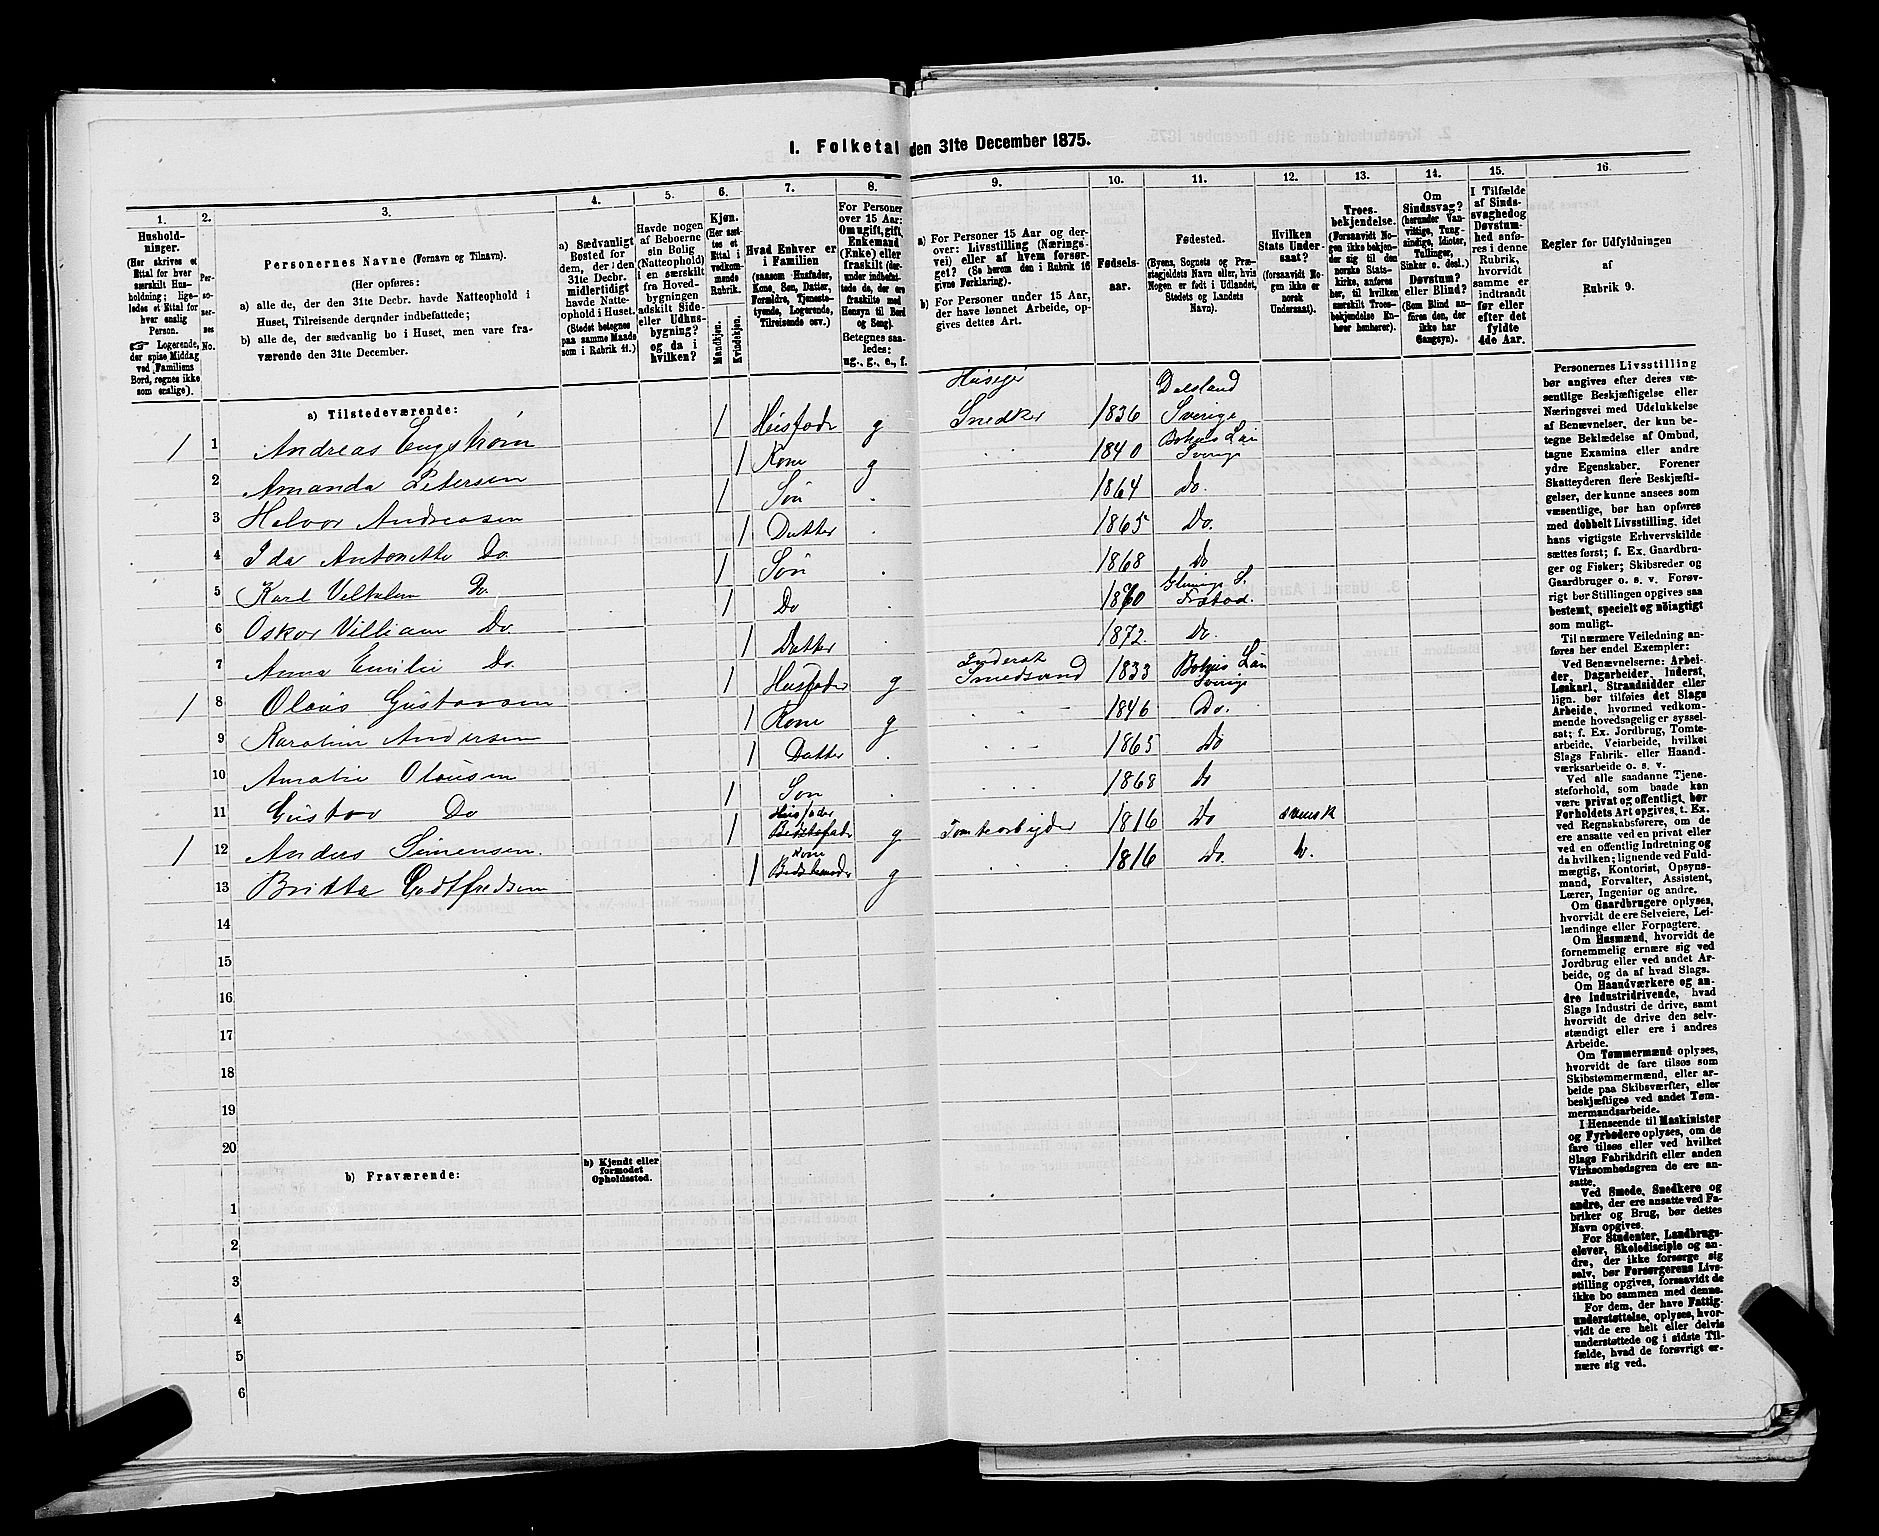 I. Folketal den 31te December 1875.
1. 2. 3. 4. 5. 6. 7. 8. 9. 10. 11. 12. 13. 14. 15. 16.
Hushold-
ninger.
(Her skrives et
Ettal for hver
særskilt Hus-
holdning; lige-
ledes et Ettal for
hver enslig
Person.
☞ Logerende,
der spise Middag
ved Familiens
Bord, regnes ikke
som enslige).
Per-
so-
ner-
nes
No.
Personernes Navne (Fornavn og Tilnavn).
(Her opføres:
a) alle de, der den 31te Decbr. havde Natteophold i
Huset, Tilreisende derunder indbefattede;
b) alle de, der sædvanlig bo i Huset, men vare fra-
værende den 31te December.
a) Sædvanligt
Bosted for
dem, der den
31te Decbr.
midlertidigt
havde Natte-
ophold i Huset.
(Stedet betegnes
paa samme Maade
som i Rubrik 11.)
Havde nogen
af Beboerne
sin Bolig
(Natteophold)
i en særskilt
fra Hoved-
bygningen
adskilt Side-
eller Udhus-
bygning?
og da i
hvilken?
Kjøn.
(Her sæt-
tes et
Ettal i
vedkom-
mende
Rubrik.
Mandkjøn.
Kvindekjøn.
Hvad Enhver er
i Familien
(saasom Husfader,
Kone, Søn, Datter,
Forældre, Tjeneste-
tyende, Logerende,
Tilreisende osv.)
For Personer
over 15 Aar:
Om ugift, gift,
Enkemand
(Enke) eller
fraskilt (der-
under indbefat-
tede de, der ere
fraskilte med
Hensyn til Bord
og Seng).
Betegnes saa-
ledes:
ug., g., e., f.
a) For Personer 15 Aar og der-
over: Livsstilling (Nærings-
vei) eller af hvem forsør-
get? (Se herom den i Rubrik 16
givne Forklaring).
b) For Personer under 15 Aar,
der have lønnet Arbeide, op-
gives dettes Art.
Fødsels-
aar.
Fødested.
(Byens, Sognets og Præ-
stegjeldets Navn eller, hvis
Nogen er født i Udlandet,
Stedets og Landets
Navn).
Hvilken
Stats Under-
saat?
(forsaavidt No-
gen ikke er
norsk
Undersaat).
Troes-
bekjendelse.
(Forsaavidt No-
gen ikke bekjen-
der sig til den
norske Stats-
kirke, anføres
her, til hvilken
særskilt Troes-
bekjendelse En-
hver henhører).
Om
Sindssvag?
(herunder Van-
vittige, Tung-
sindige, Idioter,
Tullinger,
Sinker o. desl.)
Døvstum?
eller Blind?
(Som Blind an-
føres den, der
ikke har
Gangsyn).
I Tilfælde
af Sinds-
svaghed og
Døvstum-
hed anfø-
res i denne
Rubrik,
hvorvidt
samme er
indtraadt
før eller
efter det
fyldte
4de Aar.
Regler for Udfyldningen
af
Rubrik 9.
a) Tilstedeværende:
1 1 Andreas Engstrøm 1 Husfader g Huseier Snedker 1836 Dalsland Sverige
2 Amanda Petersen 1 Kone g 1840 Bohus Län Sverige
3 Halvor Andreasen 1 Søn 1864 Do.
4 Ida Antonette Do 1 Datter 1865 Do.
5 Karl Vilhelm Do. 1 Søn 1868 Do
6 Oskar Villiam Do. 1 Do 1870 Glemmige S.
7 Anna Emilie Do. 1 Datter 1872. Do.
1 8 Olaus Gustavsen 1 Husfader g Inderst 1833 Bohus Län Sverige
9 Karoline Andersen 1 Kone g 1846 Do.
10 Amalie Olausen 1 Datter 1865 Do
11 Gustav Do 1 Søn 1868 Do
1 12 Anders Simensen. 1 Husfader Bedstefader g Tomtearbejder 1816 Do svensk
13 Britta Godtfredsen 1 Kone Bedstemoder g 1816 Do. do.
14
15
16
17
18
19
20
b) Fraværende:
b) Kjendt eller
formodet
Opholdssted.
1
2
3
4
5
6
Personernes Livsstilling
bør angives efter deres væ-
sentlige Beskjæftigelse eller
Næringsvei med Udelukkelse
af Benævnelser, der kun be-
tegne Beklædelse af Ombud,
tagne Examina eller andre
ydre Egenskaber. Forener
Skatteyderen flere Beskjæfti-
gelser, der kunne ansees som
væsentlige, bør han opføres
med dobbelt Livsstilling, idet
hans vigtigste Erhvervskilde
sættes først; f. Ex. Gaardbru-
ger og Fisker; Skibsreder og
Gaardbruger o. s. v. Forøv-
rigt bør Stillingen opgives saa
bestemt, specielt og nøiagtigt
som muligt.
Til nærmere Veiledning an-
føres her endel Exempler:
Ved Benævnelserne: Arbei-
der, Dagarbeider, Inderst,
Løskarl, Strandsidder eller
lign. bør tilføies det Slags
Arbeide, hvormed vedkom-
mende hovedsagelig er syssel-
sat; f. Ex. Jordbrug, Tomte-
arbeide, Veiarbeide, hvilket
Slags Fabrik- eller Haand-
værksarbeide o. s. v.
Ved alle saadanne Tjene-
steforhold, som baade kan
være privat og offentligt, bør
Forholdets Art opgives, t. Ex.
ved Regnskabsførere, om de
ere ansatte ved en privat eller
ved en offentlig Indretning og
da hvilken; lignende ved Fuld-
mægtig, Kontorist, Opsyns-
mand, Forvalter, Assistent,
Lærer, Ingeniør og andre.
Om Gaardbrugere oplyses,
hvorvidt de ere Selveiere, Lei-
lændinge eller Forpagtere.
Om Husmænd, hvorvidt de
fornemmelig ernære sig ved
Jordbrug eller ved andet Ar-
beide, og da af hvad Slags.
Om Haandværkere og an-
dre Industridrivende, hvad
Slags Industri de drive, samt
hvorvidt de drive den selv-
stændigt eller ere i andres
Arbeide.
Om Tømmermænd oplyses,
hvorvidt de fare tilsøs som
Skibstømmermænd, eller ar-
beide paa Skibsværfter, eller
beskjæftiges ved andet Tøm-
mermandsarbeide.
I Henseende til Maskinister
og Fyrbødere oplyses, om de
fare tilsøs eller ved hvilket
Slags Fabrikdrift eller anden
Virksomhedsgren de ere an-
satte.
Ved Smede, Snedkere og
andre, der ere ansatte ved Fa-
briker og Brug, bør dettes
Navn opgives.
For Studenter, Landbrugs-
elever, Skoledisciple og an-
dre, der ikke forsørge sig
selv, bør Forsørgerens Livs-
stilling opgives, forsaavidt de
ikke bo sammen med denne.
For dem, der have Fattig-
understøttelse, oplyses, hvor-
vidt de ere helt eller delvis
understøttede og i sidste Til-
fælde, hvad de forøvrigt er-
nære sig ved.